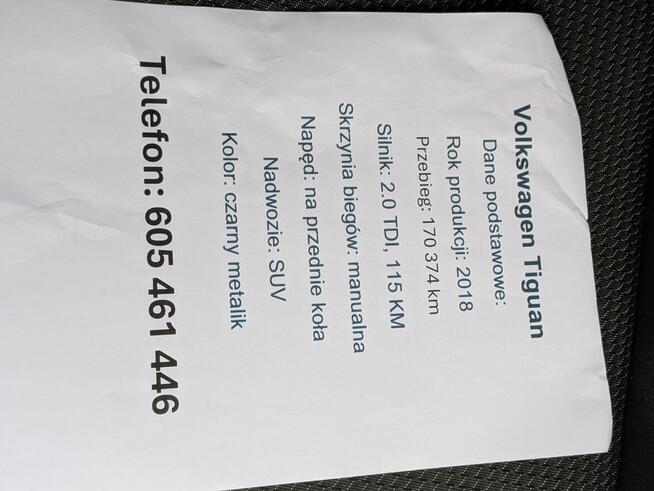 Volkswagen Tiguan
Dane podstawowe:
Rok produkcji: 2018
Przebieg: 170 374 km
Silnik: 2.0 TDI, 115 KM
Skrzynia biegów: manualna
Napęd: na przednie koła
Nadwozie: SUV
Kolor: czarny metalik
Telefon: 605 461 446